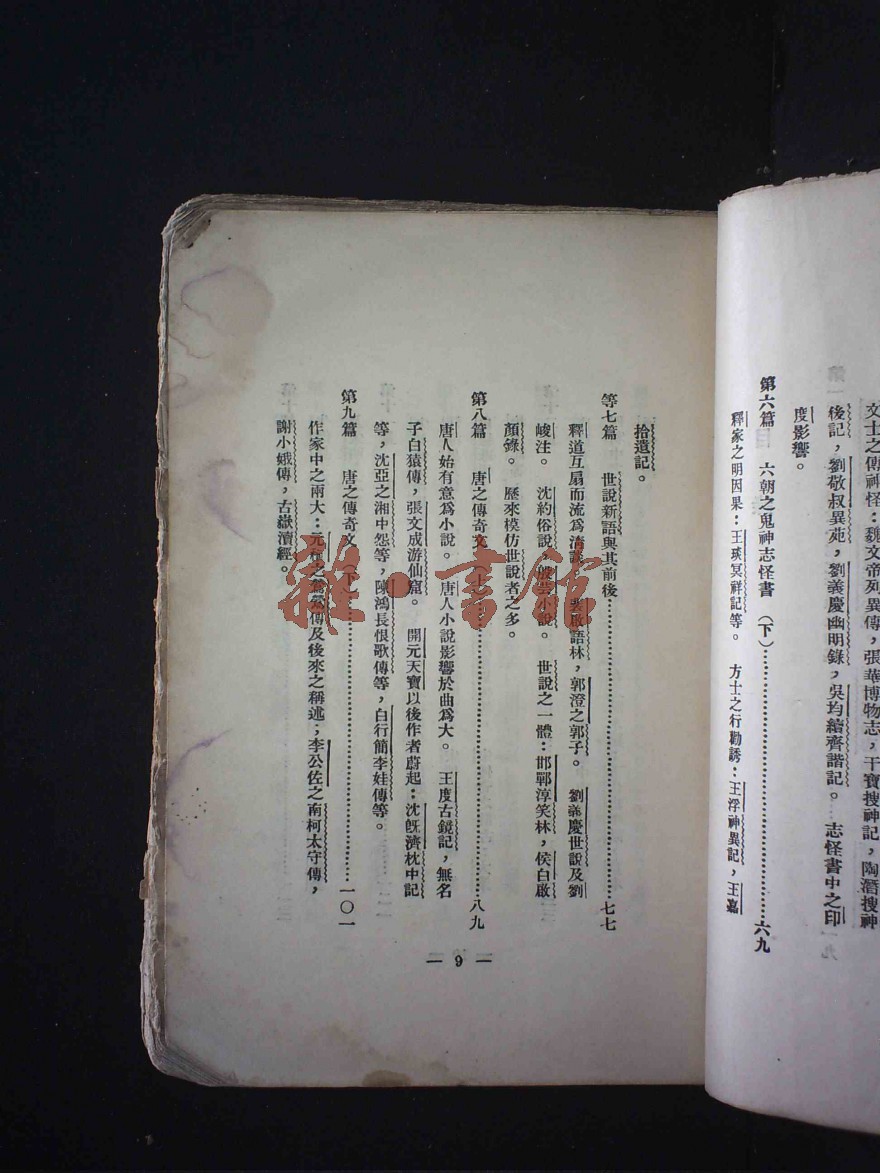 文士之傳神怪：魏文帝列異傳，張華博物志，干寶搜神記，陶潛搜神
後記，劉敬叔異苑，劉義慶幽明錄，吳均續齊諧記。 志怪書中之印
度影響。
第六篇 六朝之鬼神志怪書（下）……………………六九
釋家之明因果：王琰冥祥記等。 方士之行勸誘：王浮神異記，王嘉
拾遺記。
等七篇 世說新語與其前後……………………七七
釋道互扇而流為清談。 裴啟語林，郭澄之郭子。 劉義慶世說及劉
峻注。 沈約俗說，殷芸小說。 世說之一體：邯鄲淳笑林，侯白啟
顏錄。 歷來模仿世說者之多。
第八篇 唐之傳奇文（上）……………………八九
唐人始有意爲小說。 唐人小說影響於曲爲大。 王度古鏡記，無名
子白猿傳，張文成游仙窟。 開元天寶以後作者蔚起：沈旣濟枕中記
等，沈亞之湘中怨等，陳鴻長恨歌傳等，白行簡李娃傳等。
第九篇 唐之傳奇文（下）……………………一〇一
作家中之兩大：元稹之鶯鶯傳及後來之稱述；李公佐之南柯太守傳，
謝小娥傳，古嶽瀆經。
— 9 —
雜·書館